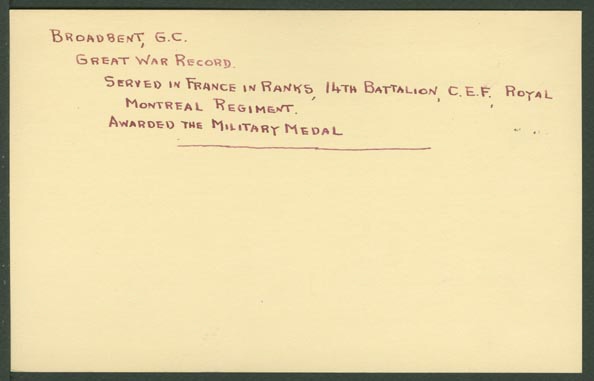 BROADBENT, G.C.
GREAT WAR RECORD.
SERVED IN FRANCE IN RANKS, 14TH BATTALION, C.E.F, ROYAL
MONTREAL REGIMENT.
AWARDED THE MILITARY MEDAL